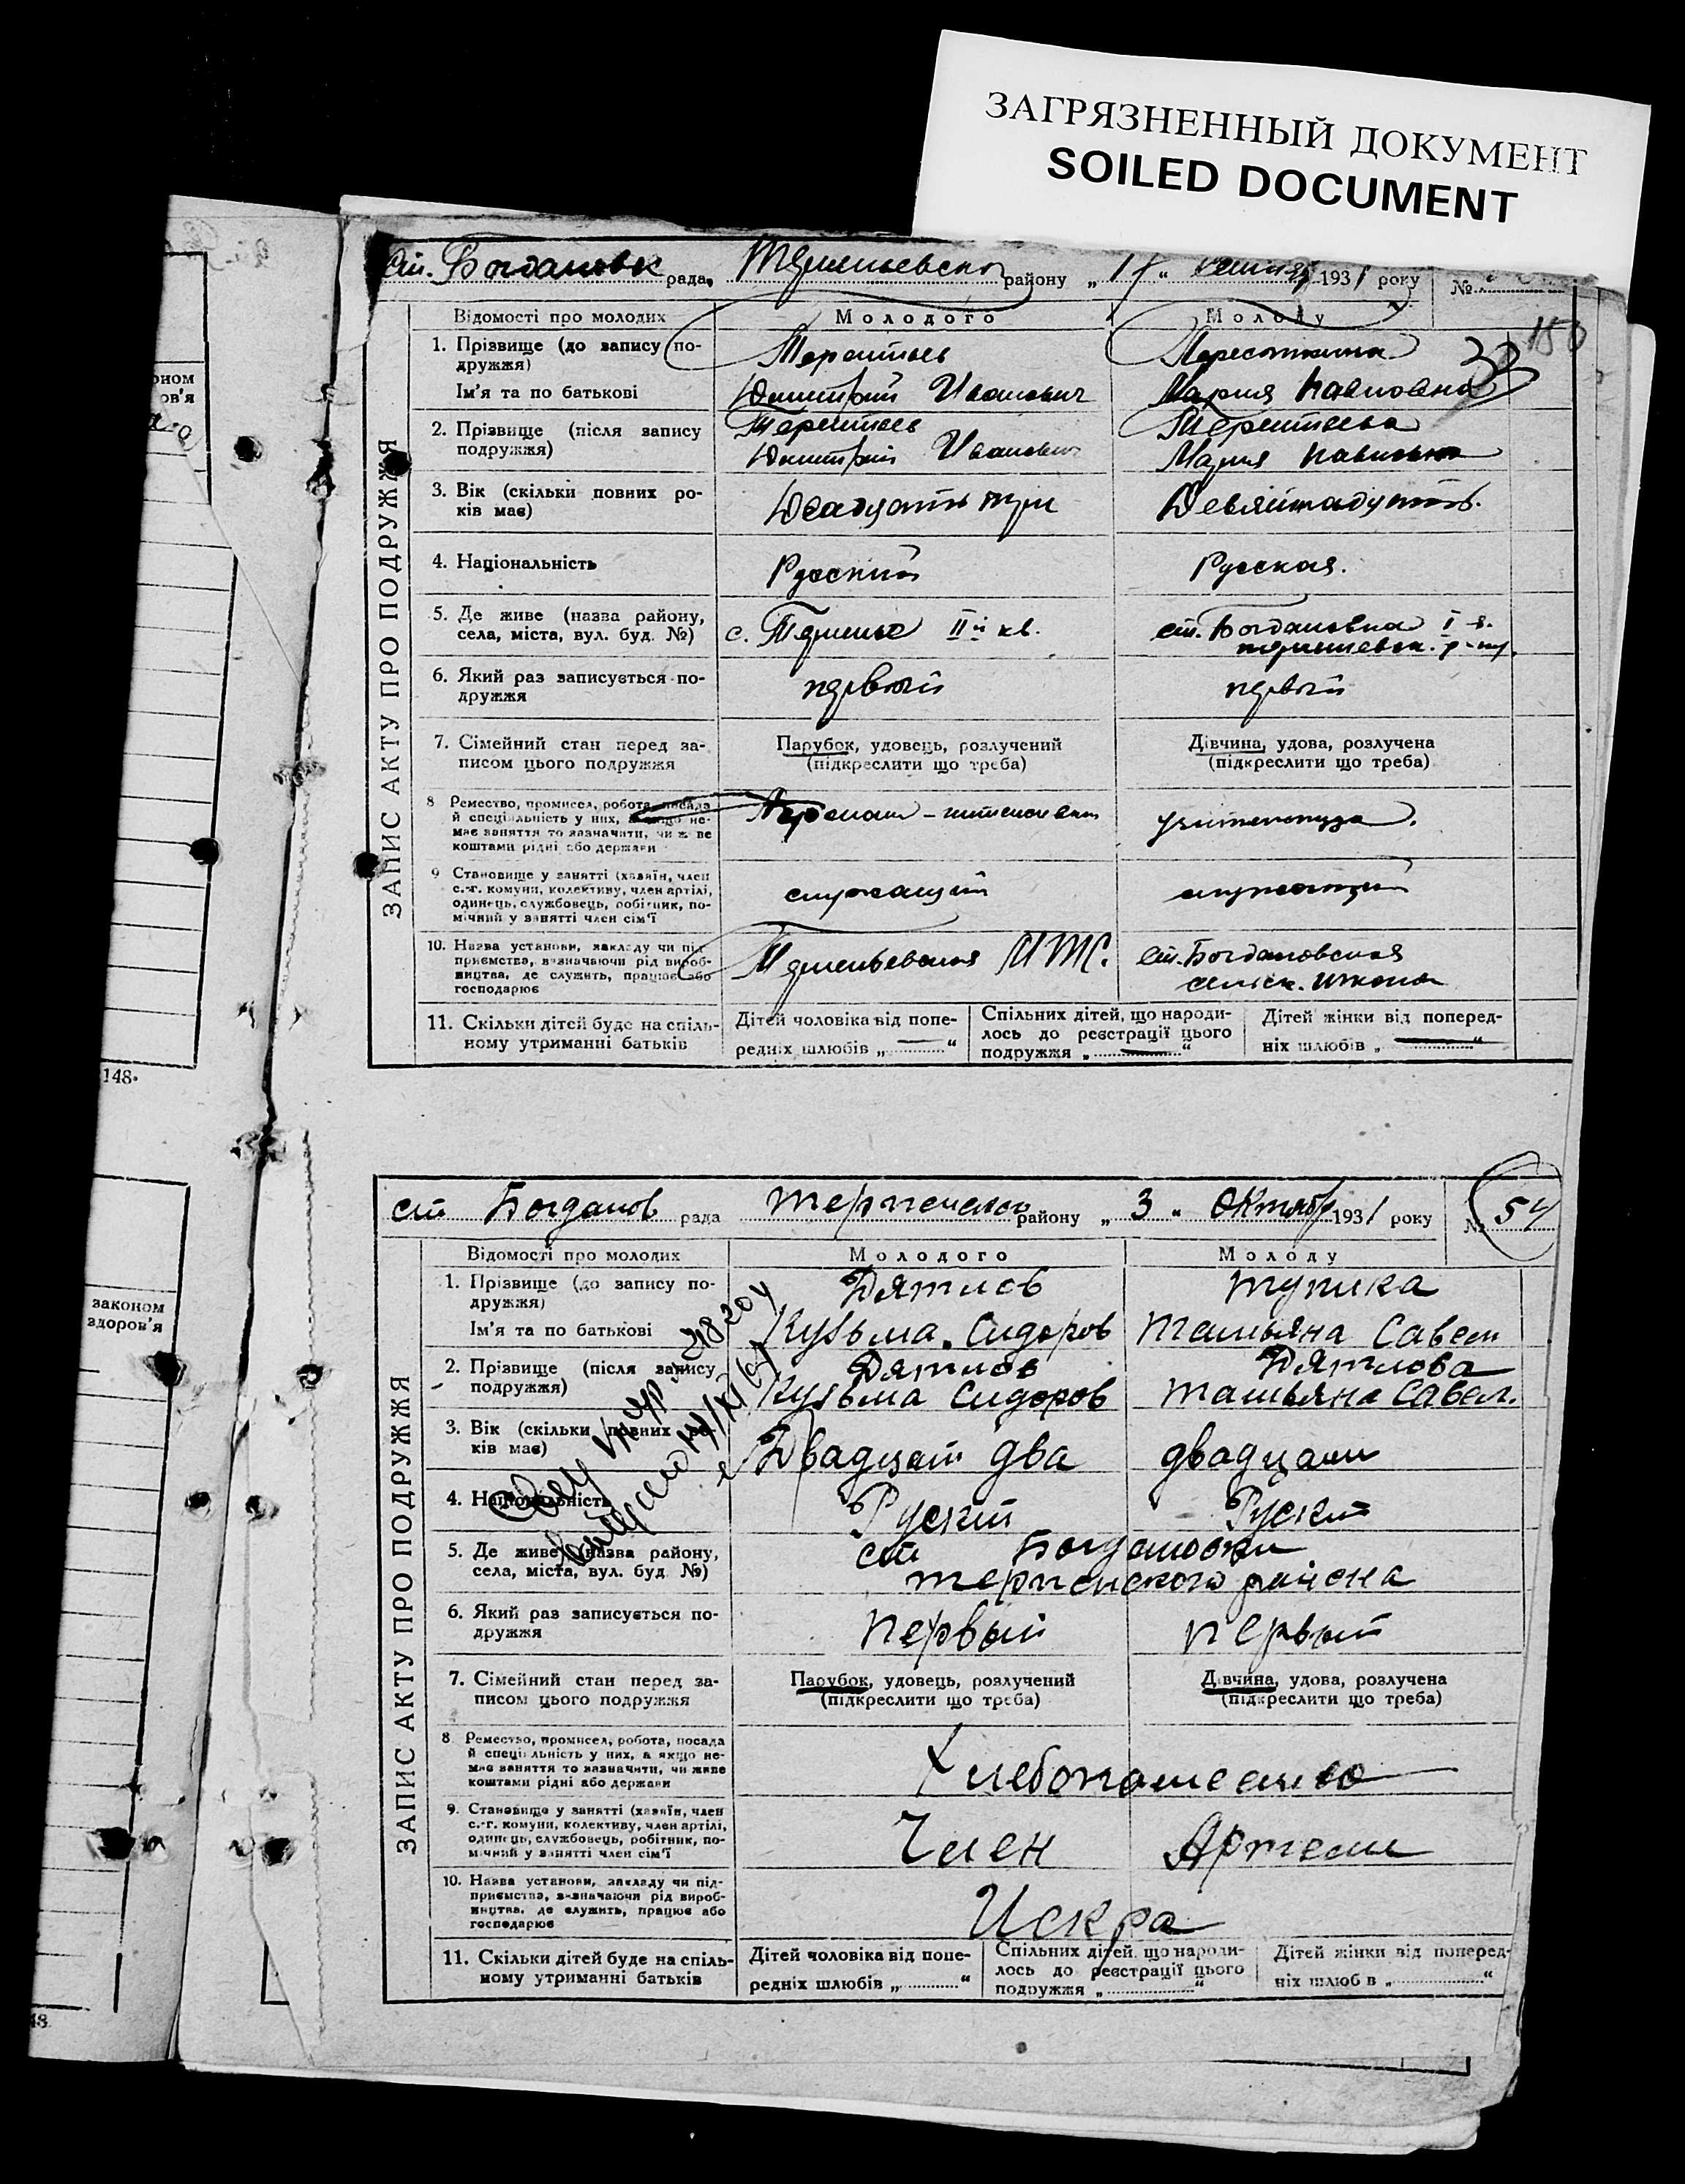 ЗАГРЯЗНЕННЫЙ ДОКУМЕНТ
SOILED DOCUMENT
ст. Богдановск рада, району „ 17 “ 1931 року №
Відомості про молодих Молодого Молоду
150
1. Прізвище (до запису по-
дружжя) Терентьев
Ім'я та по батькові Дмитрий Иванович Мария Павловна
2. Прізвище (після запису
подружжя) Терентьев Терентьева
Дмитрий Иванович Мария Павловна
3. Вік (скільки повних ро-
ків має) Двадцать три Девятнадцать.
4. Національність Русский Русская.
5. Де живе (назва району,
села, міста, вул. буд. №) с. Терпенье II й кв. ст. Богдановка I
р-ну.
6. Який раз записується по-
дружжя первый первый
7. Сімейний стан перед за-
писом цього подружжя
Парубок, удовець, розлучений
(підкреслити що треба)
Дівчина, удова, розлучена
(підкреслити що треба)
8 Ремество, промисел, робота, посада
й спеціальність у них, а якщо не-
має заняття то зазначити, чи живе
коштами рідні або держави
Агроном - учительница.
9 Становище у занятті (хазяїн, член
с.-г. комуни, колективу, член артілі,
одинець, службовець, робітник, по-
мічний у занятті член сім'ї
служащий служащий
10. Назва установи, закладу чи під-
приємства, визначаючи рід вироб-
ництва, де служить, працює або
господарює
МТС. ст. Богдановская
школа
11. Скільки дітей буде на спіль-
ному утриманні батьків
Дітей чоловіка від попе-
редніх шлюбів „ — “
Спільних дітей, що народи-
лось до реєстрації цього
подружжя „ — “
Дітей жінки від поперед-
ніх шлюбів „ — “
ЗАПИС АКТУ ПРО ПОДРУЖЖЯ
148.
ст Богданов рада району „ 3 “ Октябр 1931 року № 54
Відомості про молодих Молодого Молоду
1. Прізвище (до запису по-
дружжя) Дятлов Тупика
Ім'я та по батькові Кузьма. Сидоров Татьяна Савел
2. Прізвище (після запису
подружжя) Дятлов Дятлова
Кузьма Сидоров Татьяна Савел.
3. Вік (скільки повних ро-
ків має) Двадцат два двадцати
4. Національність Руский Руский
5. Де живе (назва району,
села, міста, вул. буд. №) ст Богдановки
терпенского района
6. Який раз записується по-
дружжя первый первый
7. Сімейний стан перед за-
писом цього подружжя
Парубок, удовець, розлучений
(підкреслити що треба)
Дівчина, удова, розлучена
(підкреслити що треба)
8 Ремество, промисел, робота, посада
й спеціальність у них, а якщо не-
має заняття то зазначити, чи живе
коштами рідні або держави
Хлебопашество
9. Становище у занятті (хазяїн, член
с.-г. комуни, колективу, член артілі,
одинець, службовець, робітник, по-
мічний у занятті член сім'ї
Член Артели
10. Назва установи, закладу чи під-
приємства, визначаючи рід вироб-
ництва, де служить, працює або
господарює
Искра
11. Скільки дітей буде на спіль-
ному утриманні батьків
Дітей чоловіка від попе-
редніх шлюбів „ “
Спільних дітей, що народи-
лось до реєстрації цього
подружжя „ “
Дітей жінки від поперед-
ніх шлюбів „ “
ЗАПИС АКТУ ПРО ПОДРУЖЖЯ
законом
здоров'я